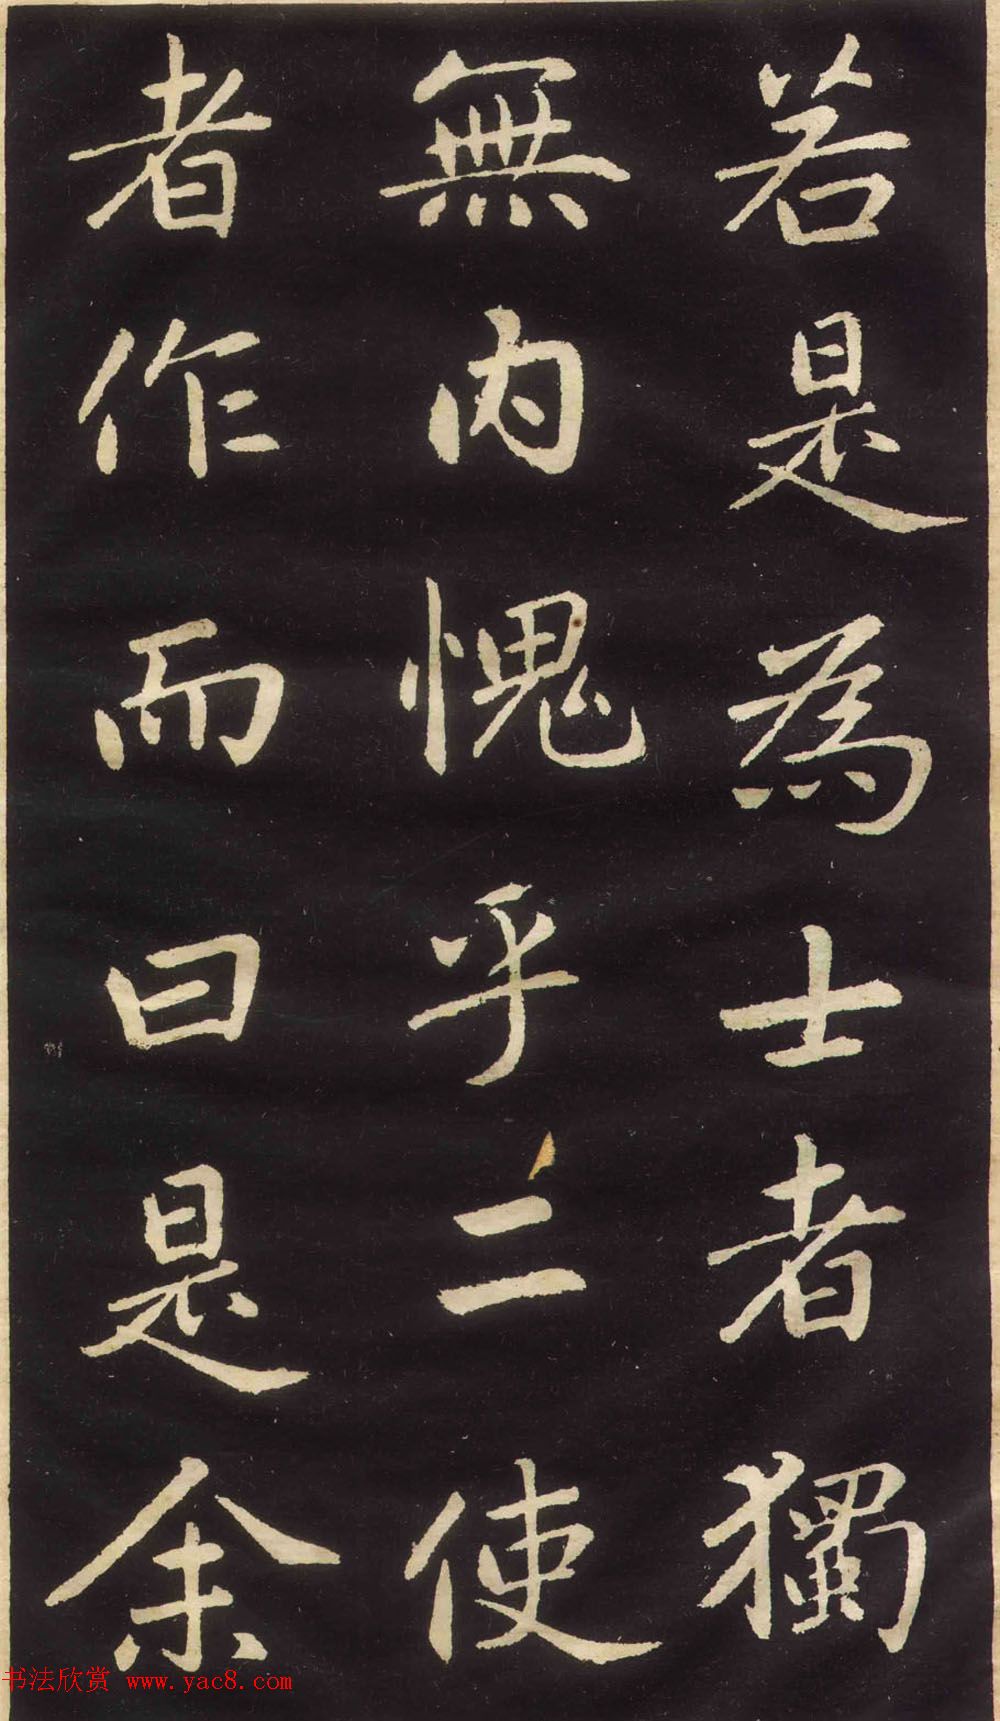 若是為士者獨
無内愧乎二使
者作而曰是余
书法欣赏 www.yac8.com